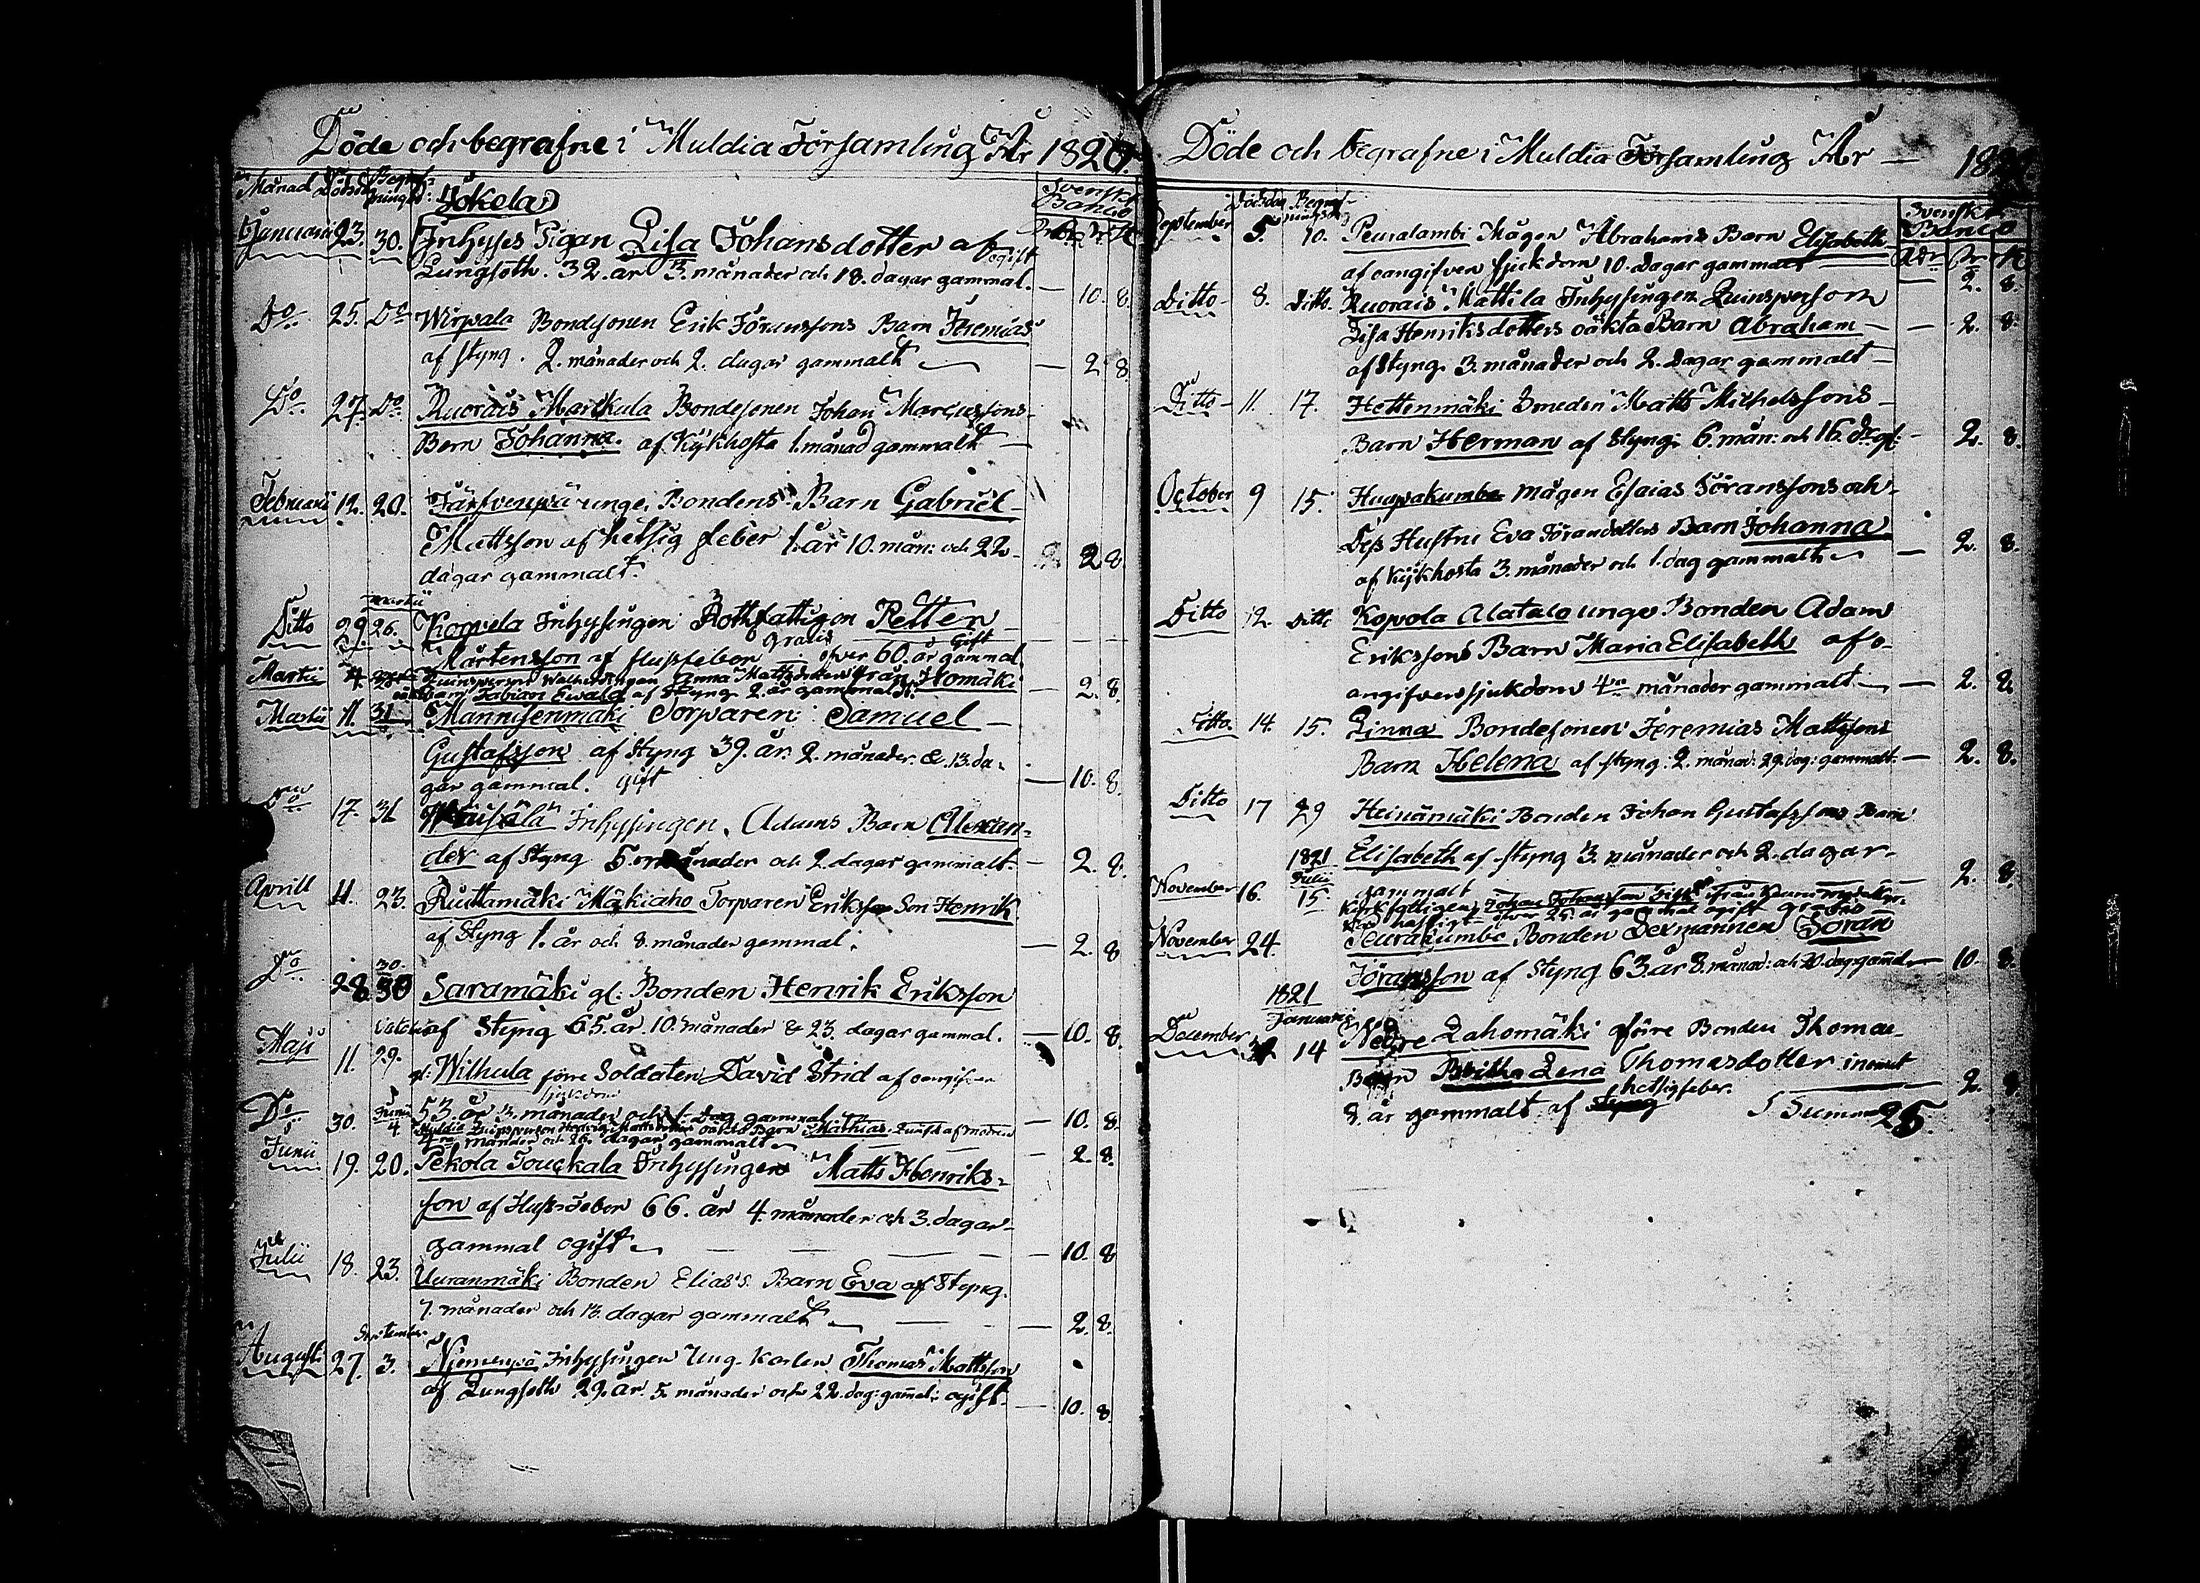 Döde och begrafne i Muldia Församling År 1820.
Månad Dödsd. Begrafningsd: Jokela Svenskt Banco
Januari 23. 30. Inhyses Pigan Lisa Johansdotter af ogift
Lungsoth. 32. år 3. månader och 18. dagar gammal. — 10. 8.
Do. 25. Do Wirpala Bondesonen Erik Göranssons Barn Jeremias
af styng. 2. månader och 2. dagar gammalt — 2. 8.
Do. 27. Do Ruorais Markula Bondesonen Johan Marcussons
Barn Johanna. af Kikhosta 1. månad gammalt —
Februarii 12. 20. unge Bondens Barn Gabriel
Mattsson af hetsig feber 1. år 10. mån: och 22
dagar gammalt. 2 8.
Martii
Ditto 29 26. Korpela Inhysingen Rothfattigon Petter
Gratis Gift
Mårtensson af flussfeber öfver 60. år gammal.
Martii 4. Quinspersonen Anna Mattsdotters från Homäki
oäkta Barn Fabian Ewald af Styng 2. år gammalt. — 2. 8.
Martii 11. 31. Mannisenmäki Torparen Samuel
Gustafsson af Styng 39. år. 2. månader & 13. da-
gar gammal. gift — 10. 8.
Do. 17. 31 Inhysingen Adams Barn Alexan-
der af Styng 5. månader och 2. dagar gammalt. — 2. 8.
Aprill 11. 23. Ruttamäki Mäkiaho Torparen Eriks Son Henrik
af Styng 1. år och 8. månader gammal. — 2. 8
Do 28 30 Saramäki gl: Bonden Henrik Eriksson
af Styng 65. år. 10. månader & 23. dagar gammal. — 10. 8.
Maji 11. 29. gl: Wilhula förre Soldaten David Strid af oangifven
sjukdom
53. år 3. månader och 1. Dag gammal — 10. 8.
Do 30. Junii 4. Muldia Quinsperson Hedvig oäkta Barn Mathias. Quäfd af modren
månader och 26. dagar gammalt — 2. 8.
Junii 19. 20. Pekola Touckala Inhysingen Matts Henriks-
son af Fluss-Feber 66. år 4. månader och 3. dagar
gammal ogift — 10. 8
Julii 18. 23. Uuranmäki Bonden Elias's. Barn Eva af Styng.
7. månader och 13. dagar gammalt — 2. 8.
September
Augusti 27. 3. Niemenpä Inhysingen Ung. Karlen Thomas Mattsson
af Lungsoth 29. år. 5. månader och 22. dag: gamal: ogift. — 10. 8.
Döde och begrafne i Muldia Församling År —
Dödsdag Begrafningsdag Svenskt Banco
September 5. 10. Peuralambi Mågen Abrahams Barn Elisabeth
af oangifven sjukdom 10. Dagar gammalt — 2. 8.
Ditto 8. Ditto. Ruorais Mattila Inhysingen Quinsperson
Lisa Henriksdotters oäkta Barn Abraham — 2. 8.
af Styng. 3. månader och 2. Dagar gammalt —
Ditto 11. 17. Hettenmäki Smeden Matts Michelssons
Barn Herman af Styng. 6. mån: och 16. — 2. 8.
October 9 15. Huapakumbu Mågen Esaias Göranssons och
Dess Hustru Eva Göransdotters Barn Johanna.
af Kikhosta 3. månader och 1. dag gammalt — 2. 8.
Ditto 12. Ditto Kopola Alatalo unge Bonden Adam
Erikssons Barn Maria Elisabeth af o-
angifven sjukdom 4ra månader gammalt — 2. 8.
Ditto 14. 15. Linna Bondesonen Jeremias Mattssons
Barn Helena af styng: 2. månad: 29. dag: gammalt. — 2. 8.
Ditto 17 29 Heinämäki Bonden Johan Gustafssons Barn
Elisabeth af Styng 3. månader och 2. dagar
gammalt — 2. 8.
November 16. 1821 Julii 15. Kyrkfattigen Johan Johansson från
öfver 25. år gammal ogift gratis
November 24. Peurakumbu Bonden Sexmannen Göran
Göransson af Styng 63. år 8. månad: och 20. dag: gammal — 10. 8.
1821 Januarii
December 14 Nedre Lahomäki förre Bonden Thomas
Barn Britha Lena Thomasdotter
8. år gammalt. af hettigfeber. — 2. 8.
Summa 25.